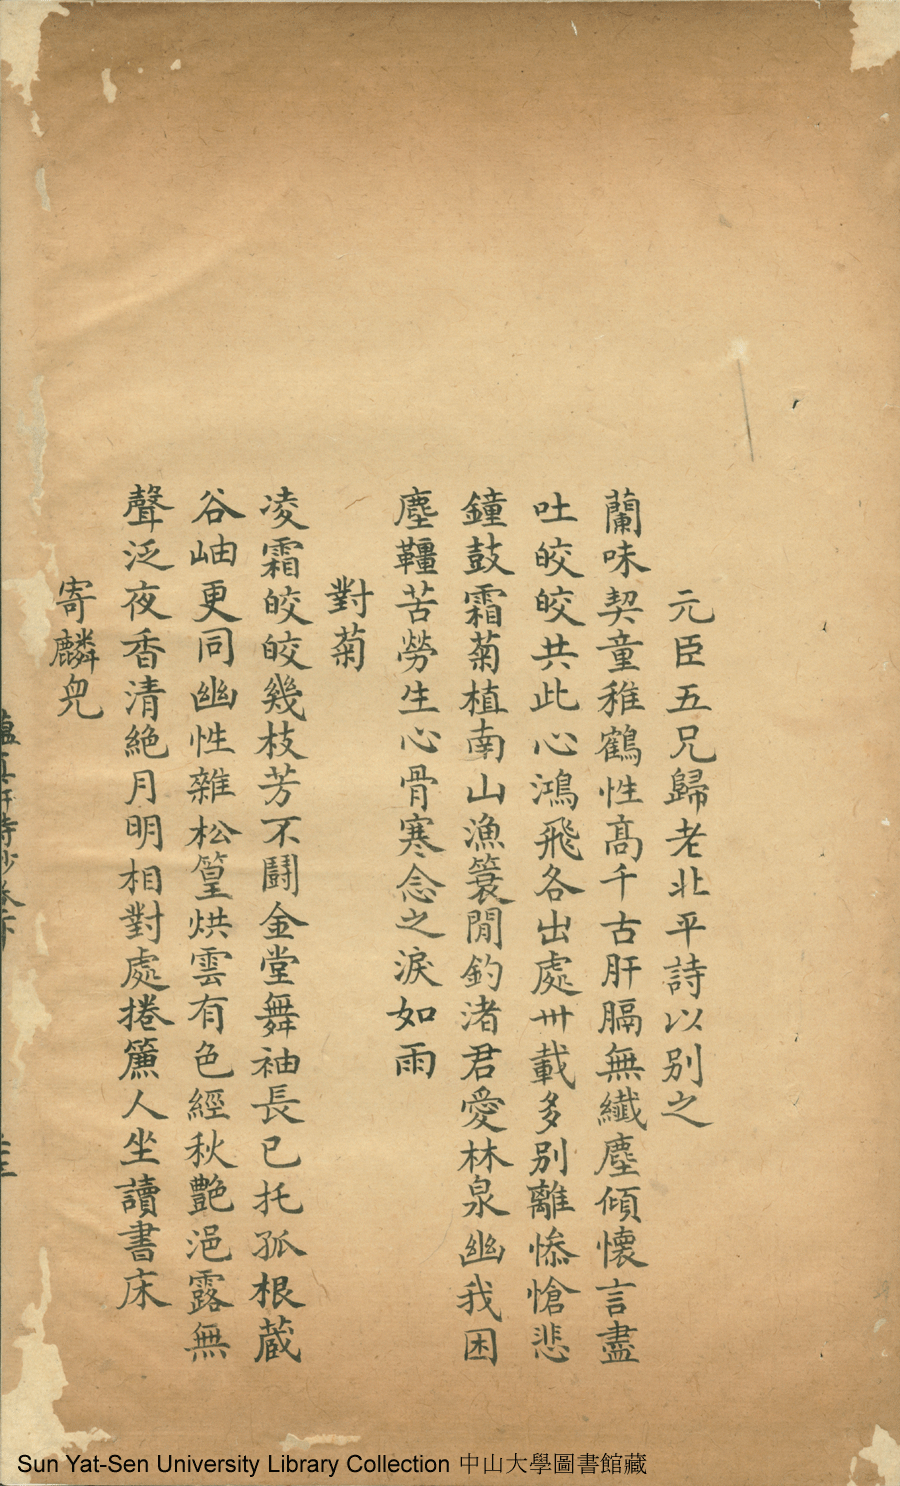 元臣五兄歸老北平詩以别之
蘭味契童稚鶴性高千古肝膈無纎塵傾懷言盡
吐皎皎共此心鴻飛各出處卅載多别離慘愴悲
鐘鼓霜菊植南山漁簑閒釣渚君愛林泉幽我困
塵韁苦勞生心骨寒念之淚如雨
對菊
凌霜皎皎幾枝芳不鬪金堂舞袖長已托孤根蔵
谷岫更同幽性雜松篁烘雲有色經秋艷浥露無
聲泛夜香清絶月明相對處捲簾人坐讀書床
寄麟兒
Sun Yat-Sen University Library Collection 中山大學圖書館藏